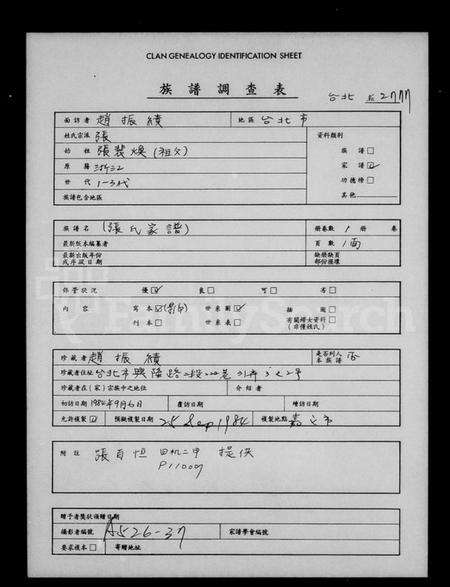 CLAN GENEALOGY IDENTIFICATION SHEET
族譜調查表
台北
面訪者 趙振績 地區 台北市
姓氏宗派 張
始祖 張裴煥(祖父) 資料類別
族譜□
原籍 浙江 家譜☑
世代 1-3代 功德榜□
族譜包含地區 其他
族譜名 (張氏家譜) 冊卷數 1 冊 卷
最新版本編纂者 頁數 1面
最新出版年份或序跋日期 缺冊缺頁部份損壞
保管狀況 優☑ 良□ 可□ 否□
內容 寫本☑ 世系圖☑ 插圖□
刊本□ 世系表□ 有關婦女資料□(非僅姓氏)
珍藏者 趙振績 是否列入本族譜 否
珍藏者住址 台北市興隆路
珍藏者在(家)宗族中之地位 介紹者
初訪日期 1984年9月6日 覆訪日期 續訪日期
允許複製☑ 預擬複製日期 25 Sep 1984 複製地點 嘉義市
附註 張自恒 田机二甲 提供
P11007
贈予者獎狀頒贈日期
攝影者編號 A526-37 家譜學會編號
要求複本□ 寄贈地址